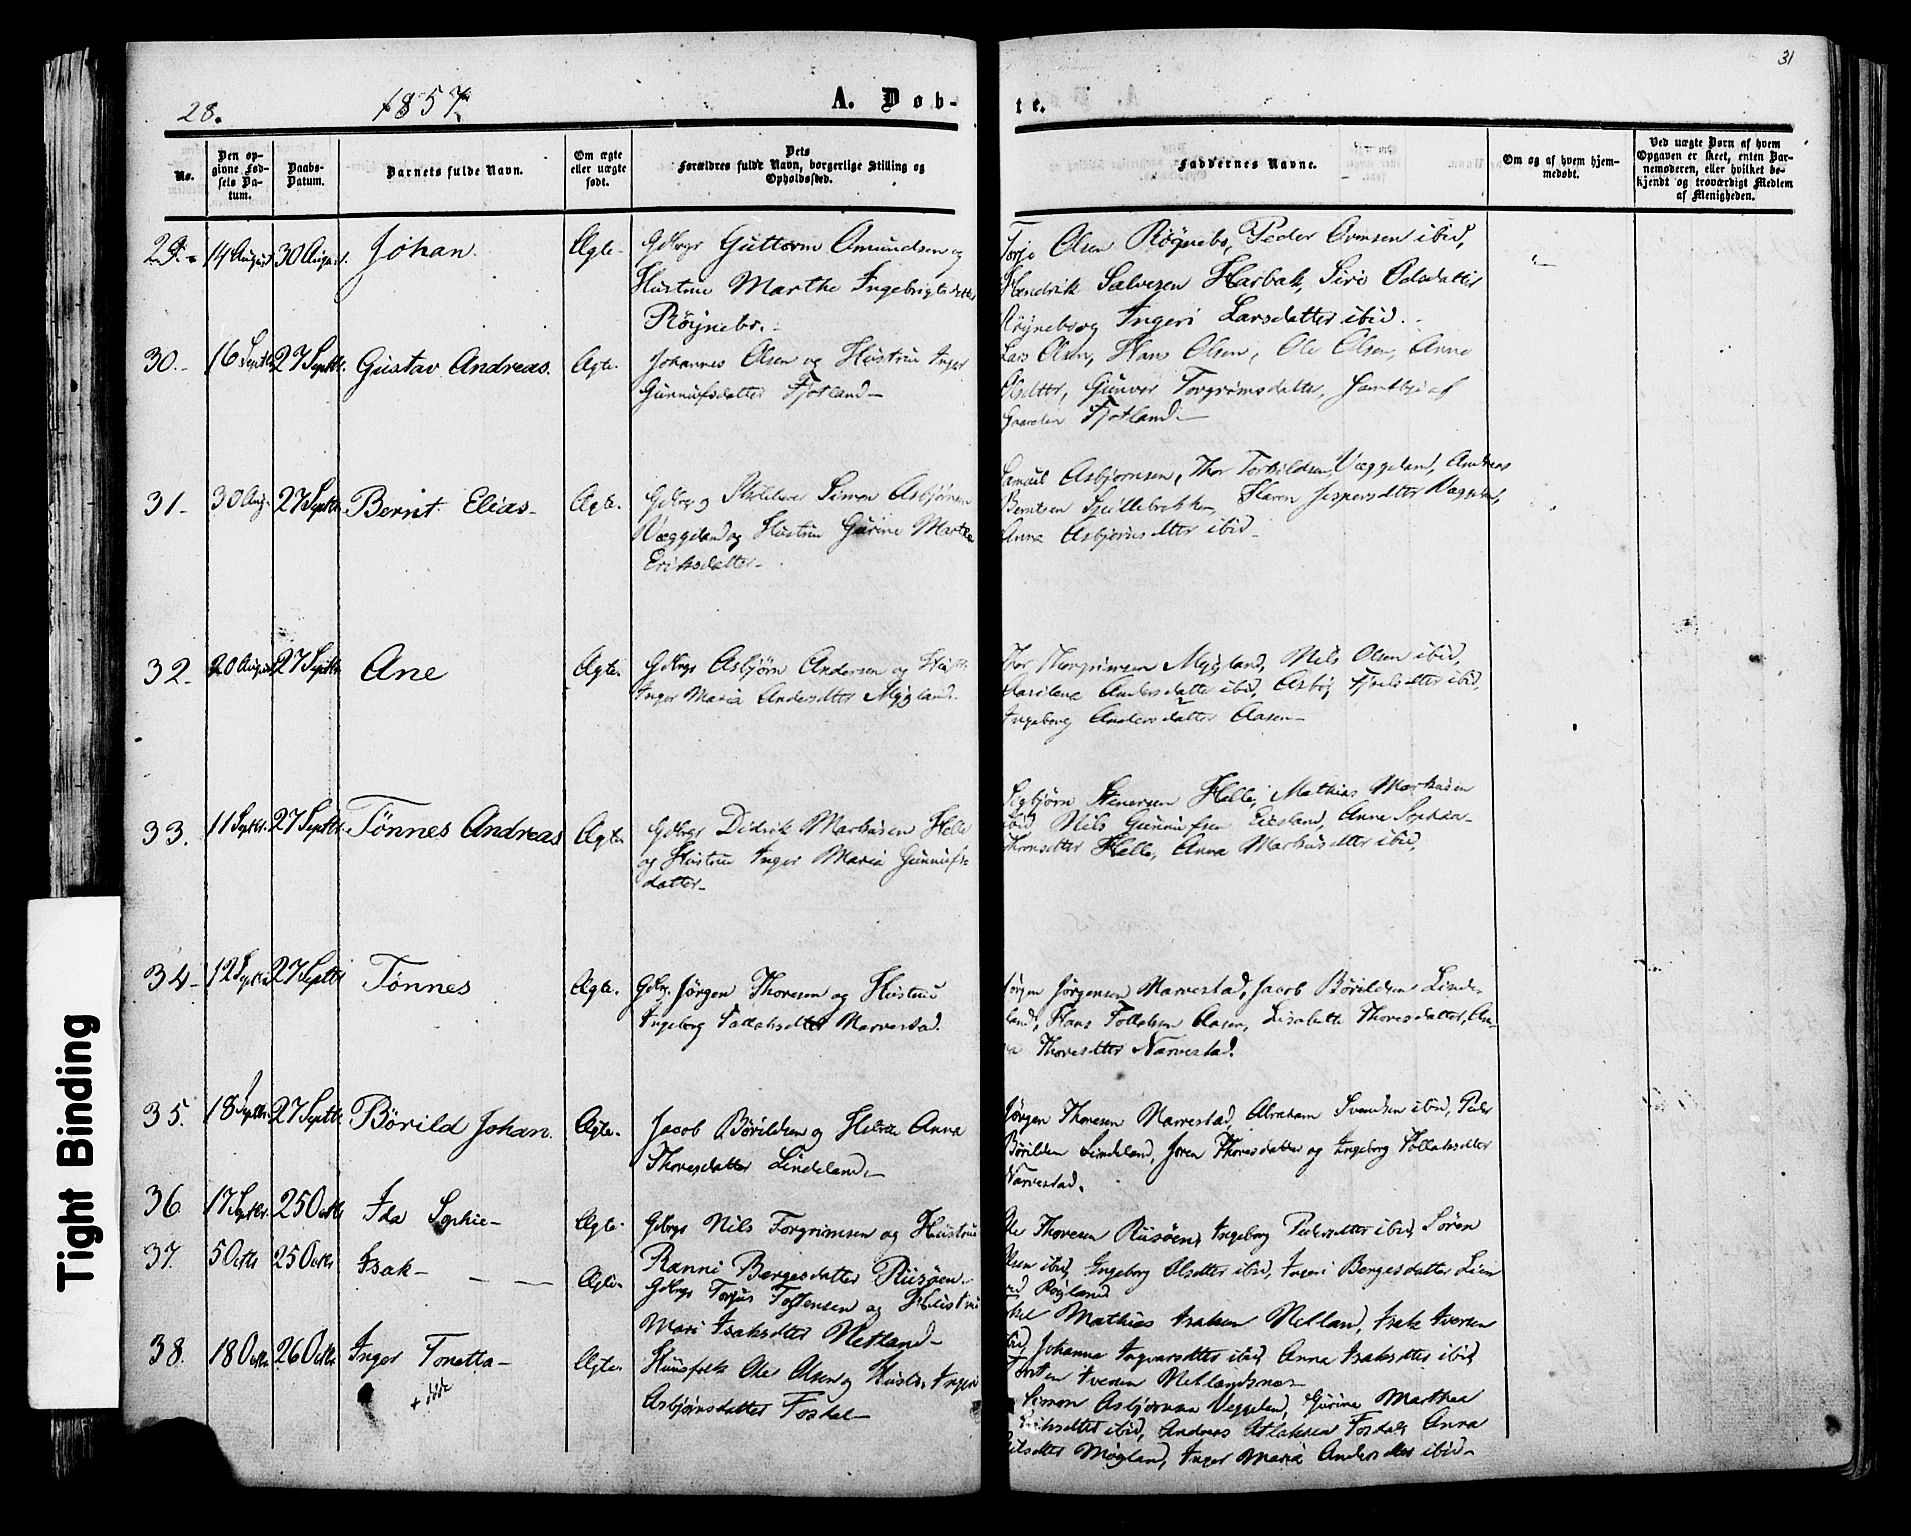 28.
1857.
A. Døb-
te.
31
No.
Den op-
givne Fød-
sels Da-
tum.
Daabs-
Datum.
Barnets fulde Navn.
Om ægte
eller uægte
født.
Dets
Forældres fulde Navn, borgerlige Stilling og
Opholdssted.
Faddernes Navne.
Om og af hvem hjem-
medøbt.
Ved uægte Børn af hvem
Opgaven er skeet, enten Bar-
nemoderen, eller hvilket be-
kjendt og troværdigt Medlem
af Menigheden.
29. 14 August 30 August. Johan. Ægte. Gdbrgr Guttorm Amundsen og
Hustrue Marthe Ingebrigtsdatter
Röijnebr.
Torjo Olsen Röijnebr, Peder Evensen ibid,
Hendrik Salvesen Harbak, Siri Adsdatter
Röijnebr og Ingeri Larsdatter ibid.
30. 16 Septbr 27 Septbr. Gustav Andreas. Ægte. Johannes Olsen og Hustrue Inger
Gunnufsdatter Fjotland
Lars Olsen, Hans Olsen, Ole Olsen, Anne
Olsdtter, Gunvor Torgrimsdatter, samtlige af
Gaarden Fjotland
31. 30 Aug. 27 Septbr Bernt Elias. Ægte. Gdbrg Simon Asbjörnsen
Væggeland og Hustrue Gurine Marthe
Eriksdatter
Samuel Asbjörnsen, Thor Torkildsen Væggeland, Andreas
Berntsen, Karen Jespersdtter Væggeland,
Anna Asbjörnsdtter ibid.
32. 20 August 27 Septbr Ane Ægte. Gdbrgr Asbjörn Andersen og Hust.
Inger Maria Andersdtter Mygland.
Thor Thorgrimsen Mygland, Nils Olsen ibid,
Andersdatter ibid, ibid,
Ingeborg Andersdatter Aasen
33. 11 Septbr. 27 Septbr. Tönnes Andreas Ægte Gdbrgr Didrik Markusen Helle
og Hustrue Inger Maria Gunnufs-
datter
Sigbjörn Stenersen Helle, Mathias Markusen
ibid, Nils Gunnufsen Eiesland, Anne Sophia
Thorsdtter Helle, Anna Markusdtter ibid,
34. 12 Septbr 27 Septbr Tönnes Ægte. Gdbrg. Jörgen Thoresen og Hustrue
Ingeborg Tallaksdtter Narvestad.
Jörgen Jörgensen Narvestad, Jacob Börildsen Linde-
land, Hans Tollaksen Aasen, Lisabeth Thoresdatter, An-
na Thoresdtter Narvestad.
35. 18 Septbr. 27 Septbr Börild Johan. Ægte. Jacob Börildsen og Hustrue Anna
Thoresdatter Lindeland
Jörgen Thoresen Narvestad, Abraham Svendsen ibid, Peder
Börildsen Lindeland, Joren Thoresdatter og Ingeborg Tollaksdtter
Narvestad.
36. 17 Septbr. 25 Octbr Ida Sophie Ægte Gdbrgr Nils Torgrimsen og Hustrue
Ranni Bergesdatter Risöen.
Ole Thoresen Risöen, Ingeborg Pedersdtter ibid, Sören
Olsen ibid, Ingeborg Olsdtter ibid, Ingeri Bergesdatter Lien
ved Röjland
37. 5 Octbr 25 Octbr Isak Ægte. Gdbrgr Torjus Tostensen og Hustrue
Mari Isaksdtter Netland
Mathias Isaksen Netland, Isak Iversen
ibid, Johanna Ingvarsdtter ibid, Anna Isaksdtter ibid,
Torsten Iversen Netlandsnes
38. 18 Octbr 26 Octbr Inger Tonetta Ægte. Huusfolk Ole Olsen og Hustr. Ingeri
+ död
Asbjörnsdatter Fosdal
Simon Asbjörnsen Veggeland, Gurine Marthea
Eriksdtter ibid, Andreas Atlaksen Fosdal, Anna
Nilsdtter Mögland, Inger Maria Andersdtter ibid
Tight Binding